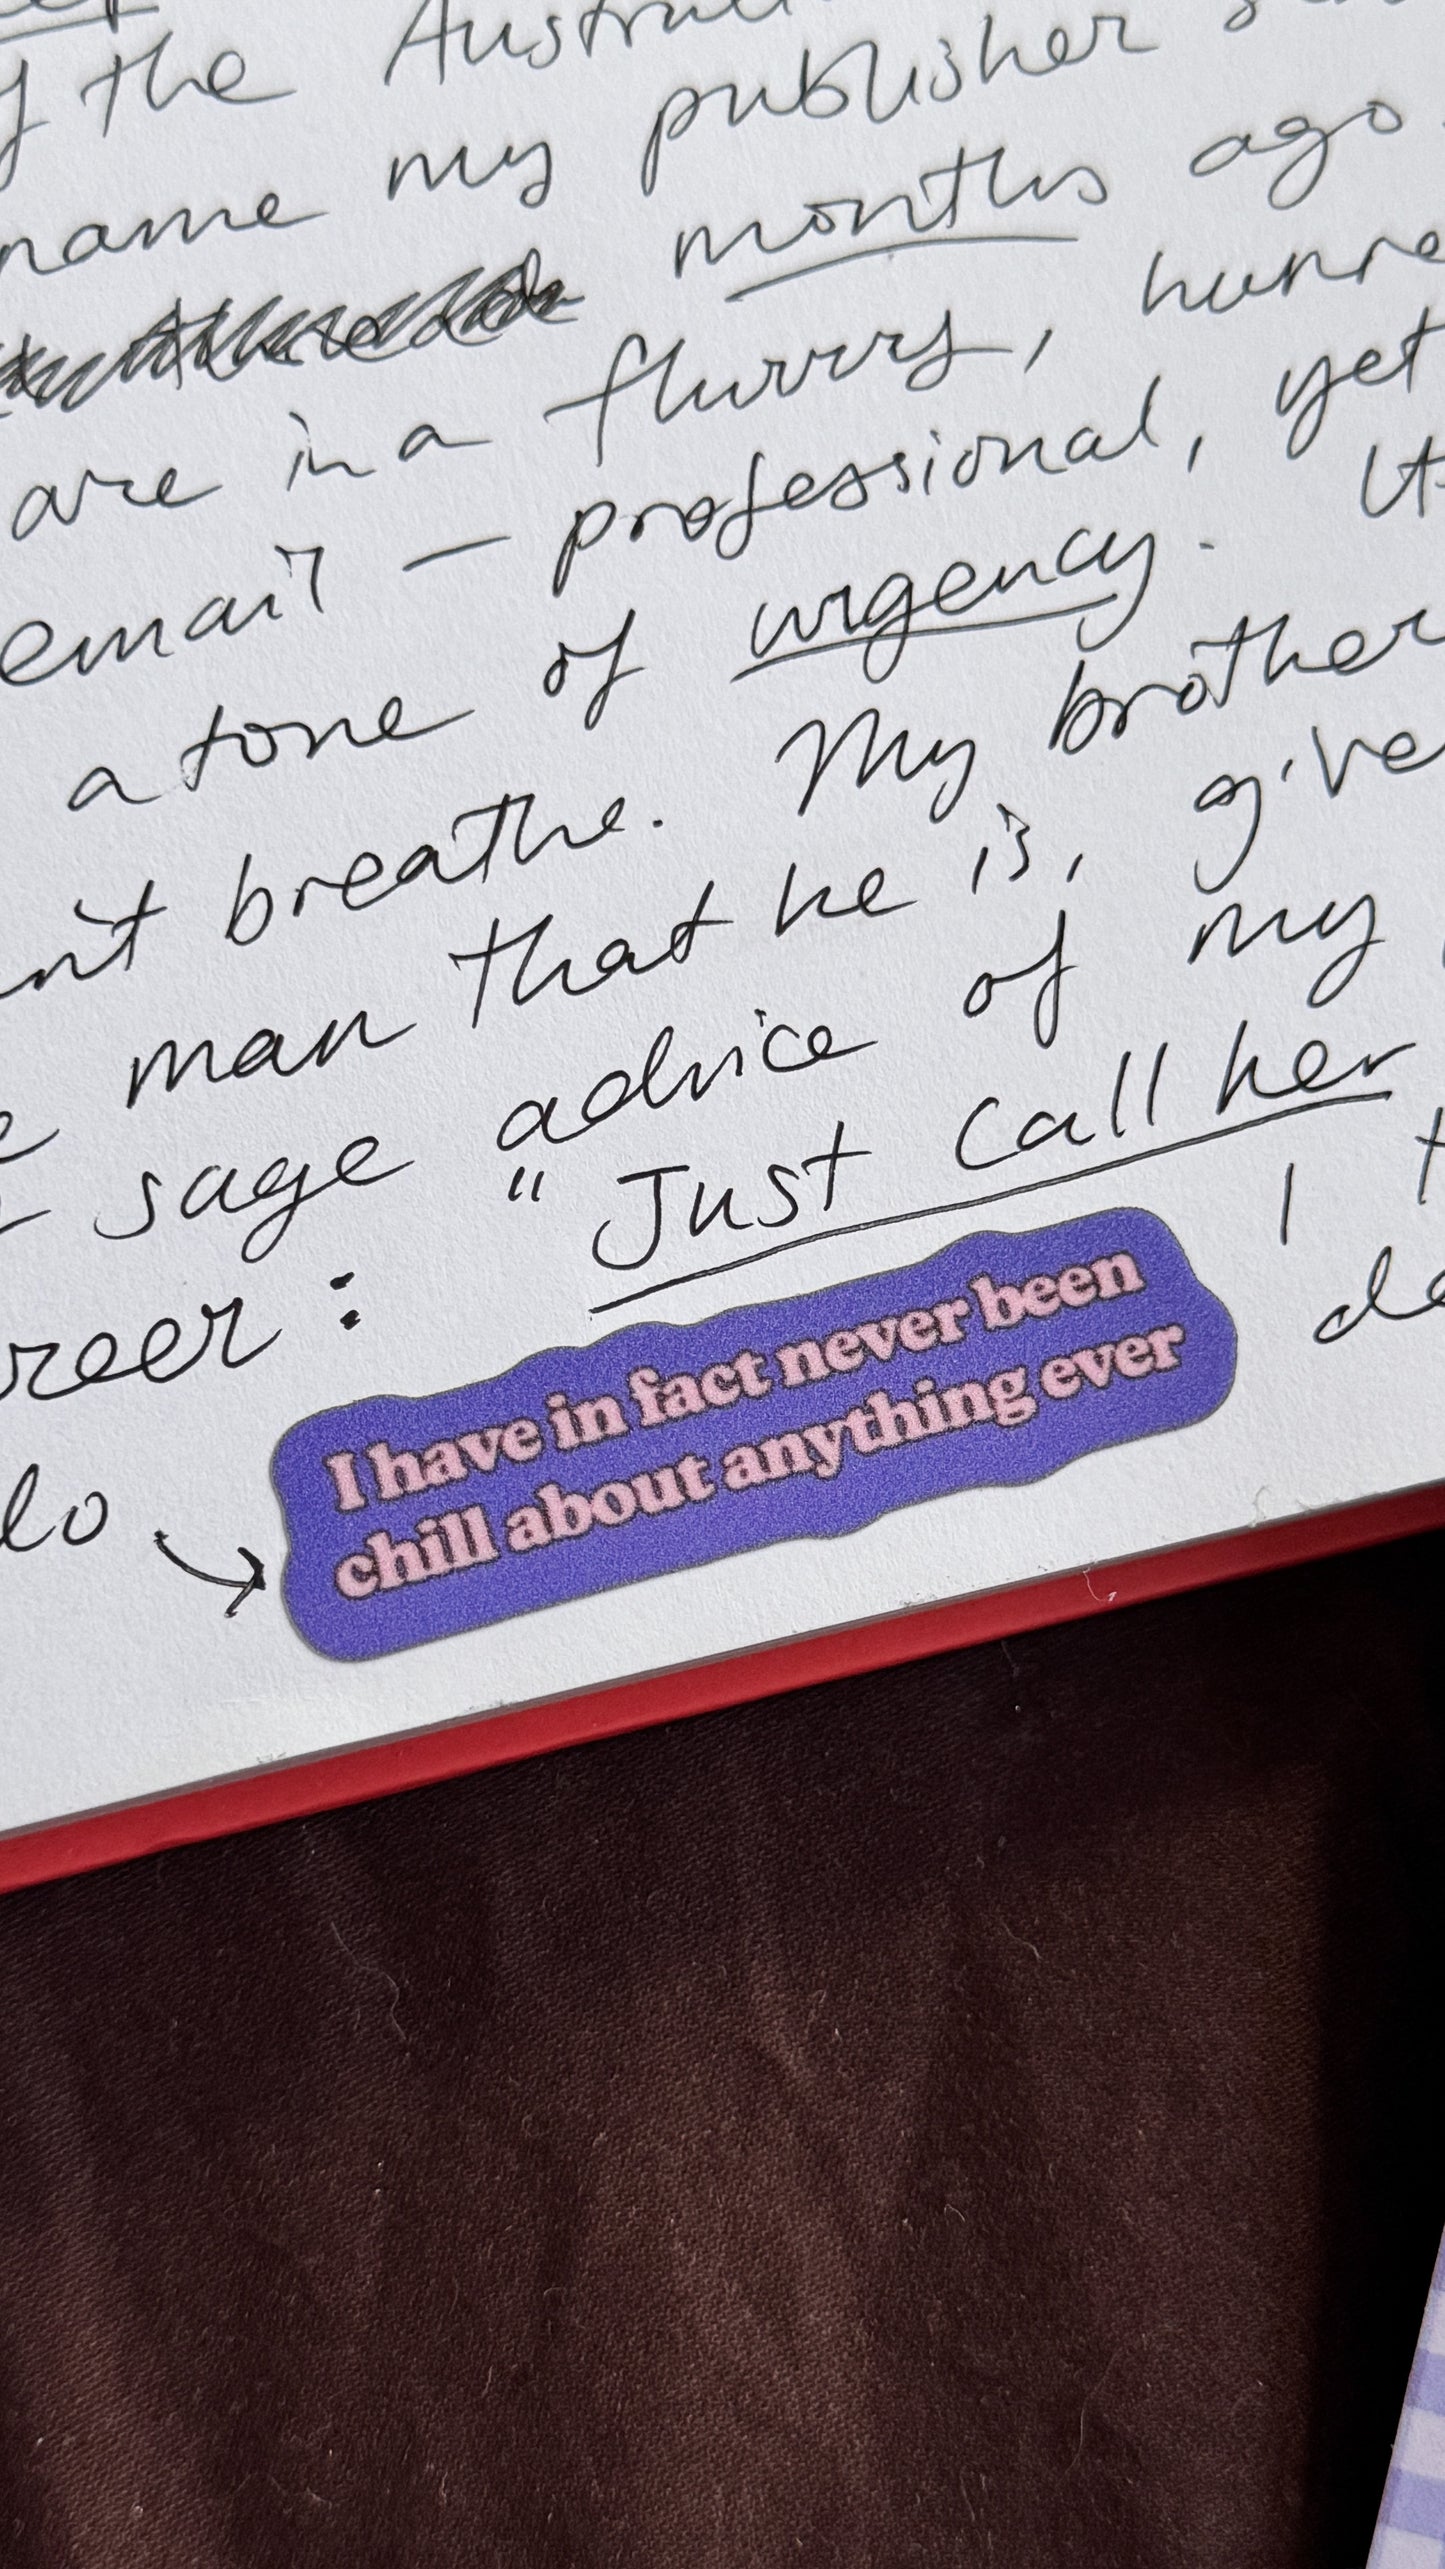 the Austral
name my publisher
months ago
are in a flurry,
email - professional, yet
a tone of urgency.
breathe. My brother
man that he is, give
sage advice of my
"Just call her
I
I have in fact never been
chill about anything ever